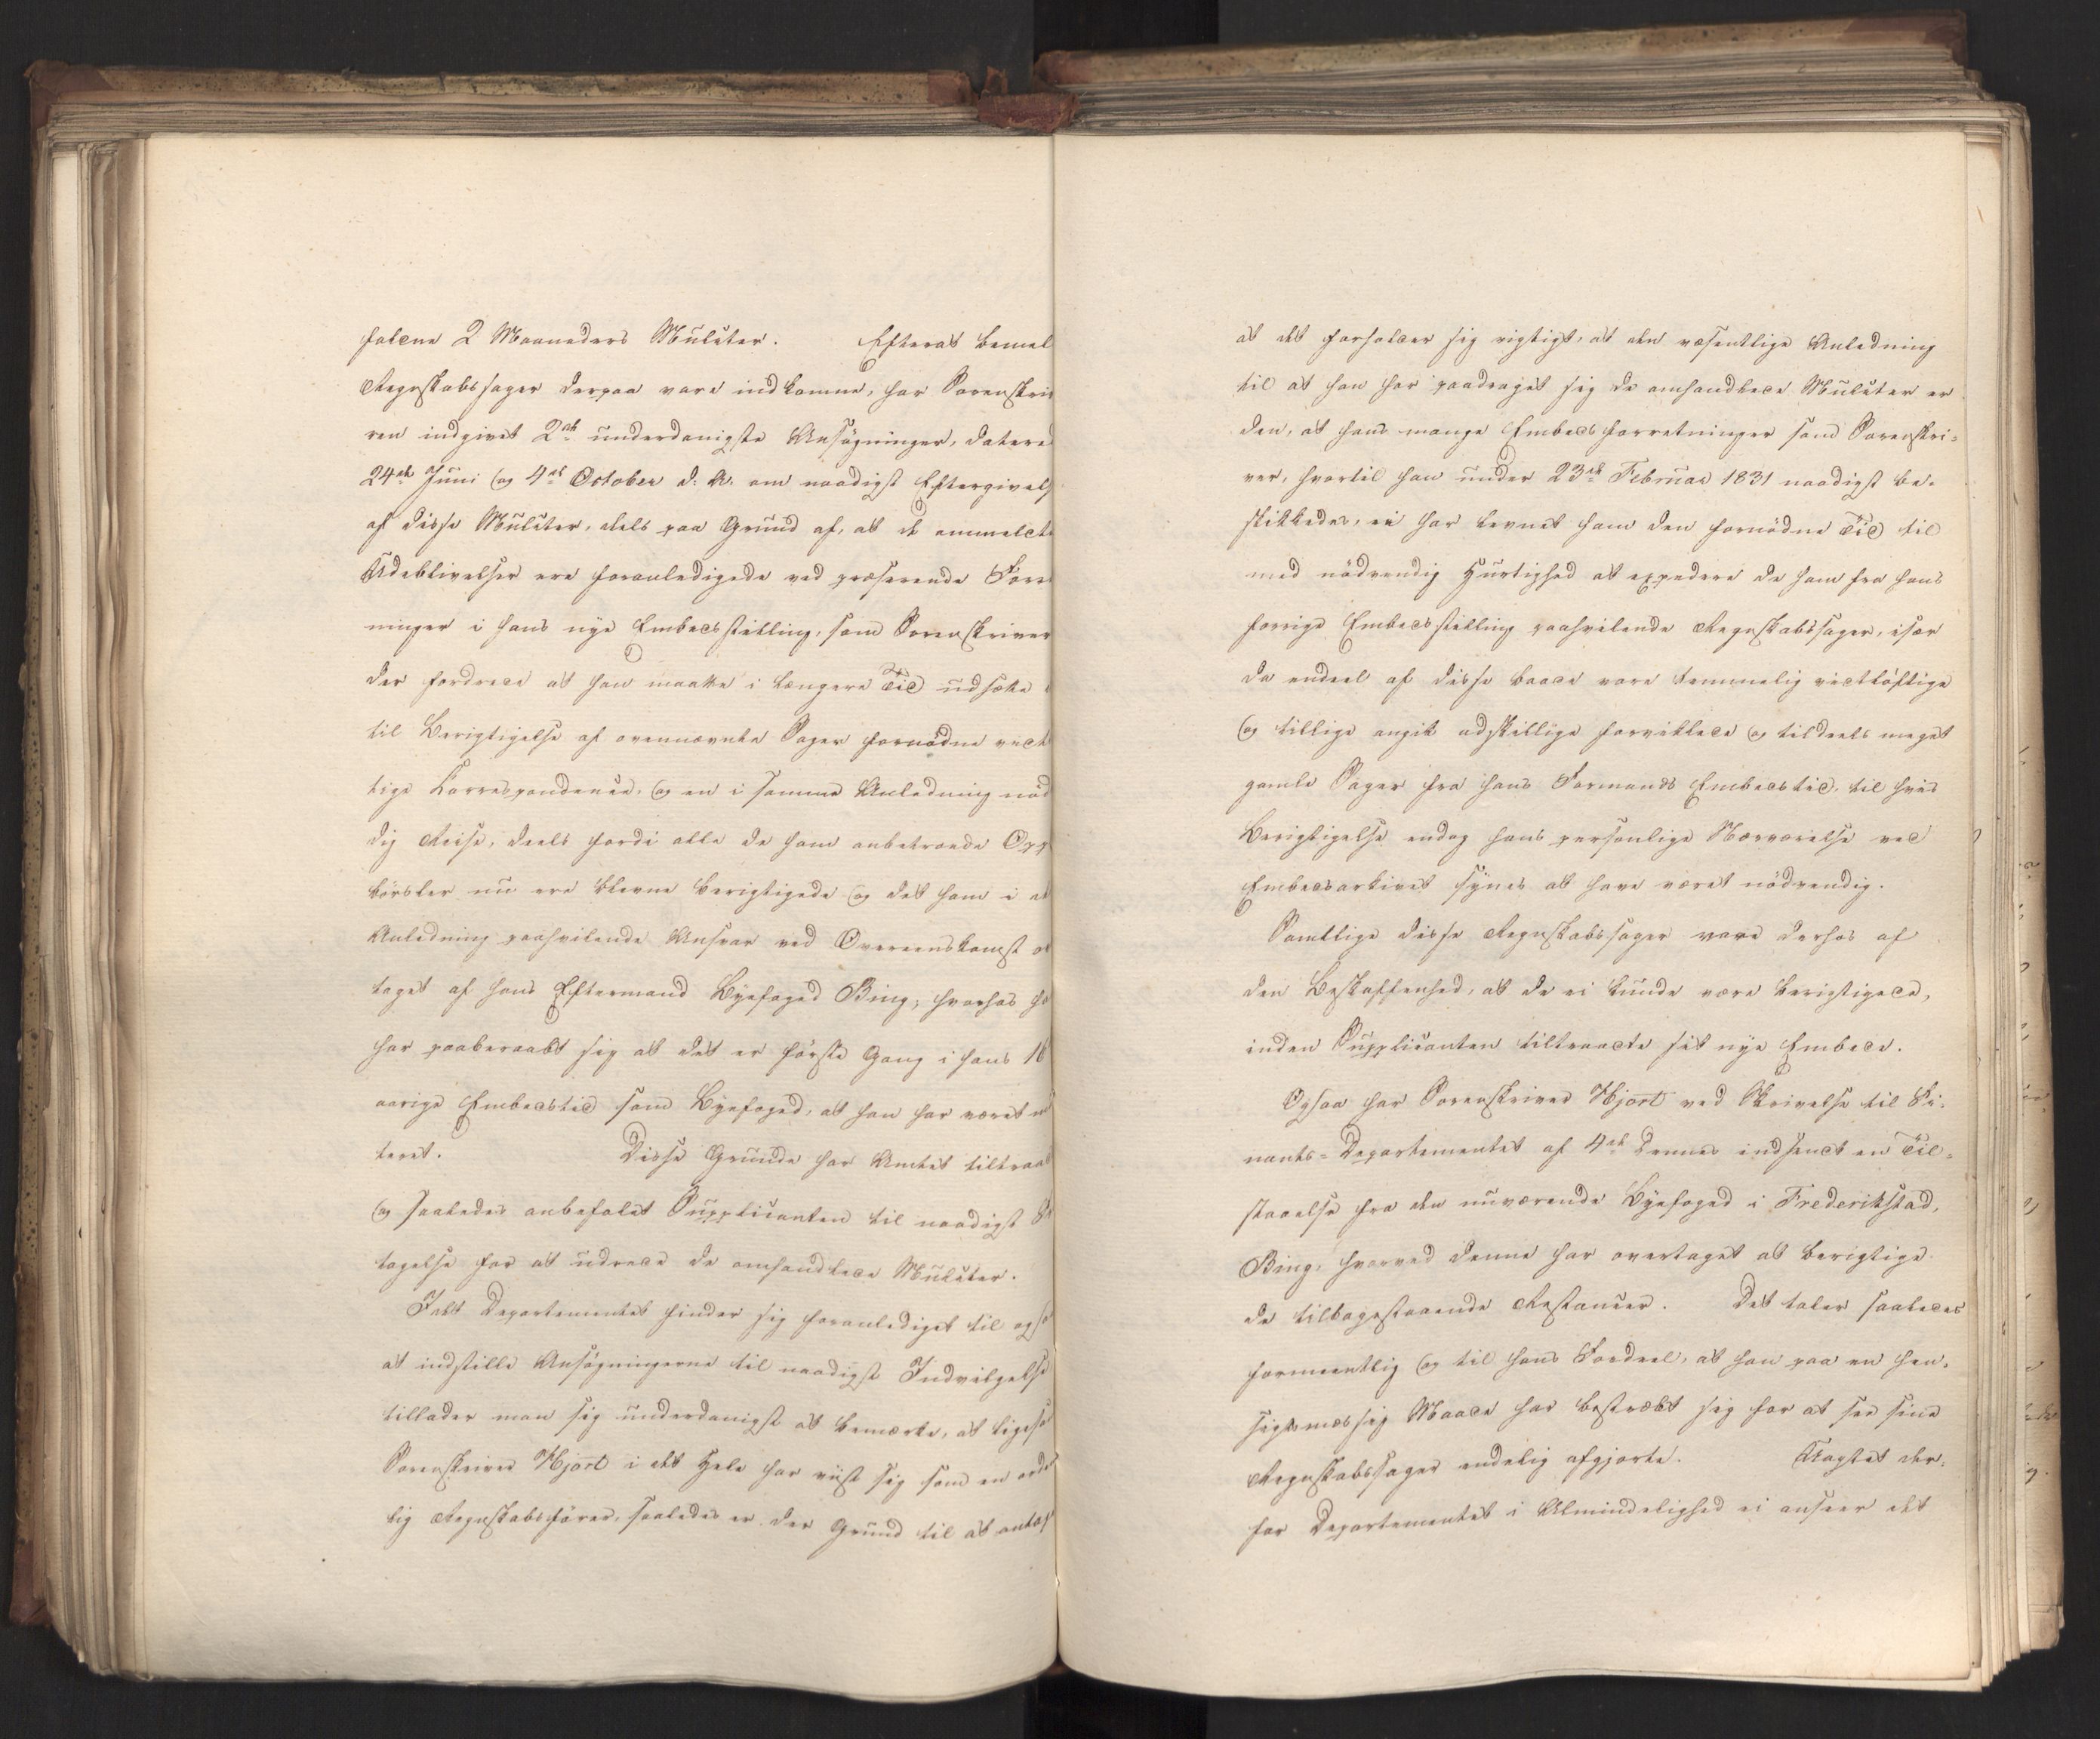 falene 2 Maaneders Mulcter. Efterat bemel
Regnskabssager derpaa vare indkomne, har Sorenskri
ren indgivet 2de underdanigste Ansøgninger, datere
24de Juni og 4de October d. A. om naadigst Eftergivels
af disse Mulcter, dels paa Grund af, at de anmeldte
Udeblivelser ere foranledigede ved præserende Forr
ninger i hans nye Embedsstilling, som Sorenskriver
der fordrede at han maatte i længere Tid udsætte
til Berigtigelse af ovennævnte Sager fornødne vidt
tige Correspondence, og en i samme Anledning nød
dig Reise, deels fordi alle de ham anbetroede Opp
børsler nu ere blevne berigtigede og det ham i
Anledning paahvilende Ansvar ved Overeenskomst o
taget af hans Eftermand Byefoged Bing, hvorhos h
har paaberaabt sig at det er første Gang i hans 16
aarige Embedstid som Byefoged, at han har været m
teret. Disse Grunde har Amtet tiltraa
og saaledes anbefalet Supplicanten til naadigst F
tagelse for at udrede de omhandlede Mulcter.
Idet Departementet finder sig foranlediget til ogs
at indstille Ansøgningerne til naadigst Indvilgelse
tillader man sig underdanigst at bemærke, at liges
Sorenskriver Hjort i det Hele har viist sig som en orde
lig Regnskabsfører, saaledes er der Grund til at antag
at det forholder sig rigtigt, at den væsentlige Anledning
til at han har paadraget sig de omhandlede Mulcter er
den, at hans mange Embedsforretninger som Sorenskri-
ver, hvortil han under 23de Februar 1831 naadigst be-
skikkedes, ei har levnet ham den fornødne Tid til
med nødvendig Hurtighed at expedere de ham fra hans
forrige Embedsstilling paahvilende Regnskabssager, især
da endeel af disse baade vare temmelig vidtløftige
og tillige angik adskillige forviklede og tildeels meget
gamle Sager fra hans Formands Embedstid, til hvis
Berigtigelse endog hans personlige Nærværelse ved
Embedsarkivet synes at have været nødvendig.
Samtlige disse Regnskabssager vare derhos af
den Beskaffenhed, at de ei kunde være berigtigede,
inden Supplicanten tiltraadte sit nye Embede.
Ogsaa har Sorenskriver Hjort ved Skrivelse til Fi-
nants-Departementet af 4de Dennes indsendt en Til-
staaelse fra den nuværende Byefoged i Frederikstad,
Bing, hvorved denne har overtaget at berigtige
de tilbagestaaende Restancer. Det taler saaledes
formeentlig og til hans Fordeel, at han paa en hen-
sigtsmæssig Maade har bestræbt sig for at see sine
Regnskabssager endelig afgjorte. Uagtet der-
for Departementet i Almindelighed ei anseer det